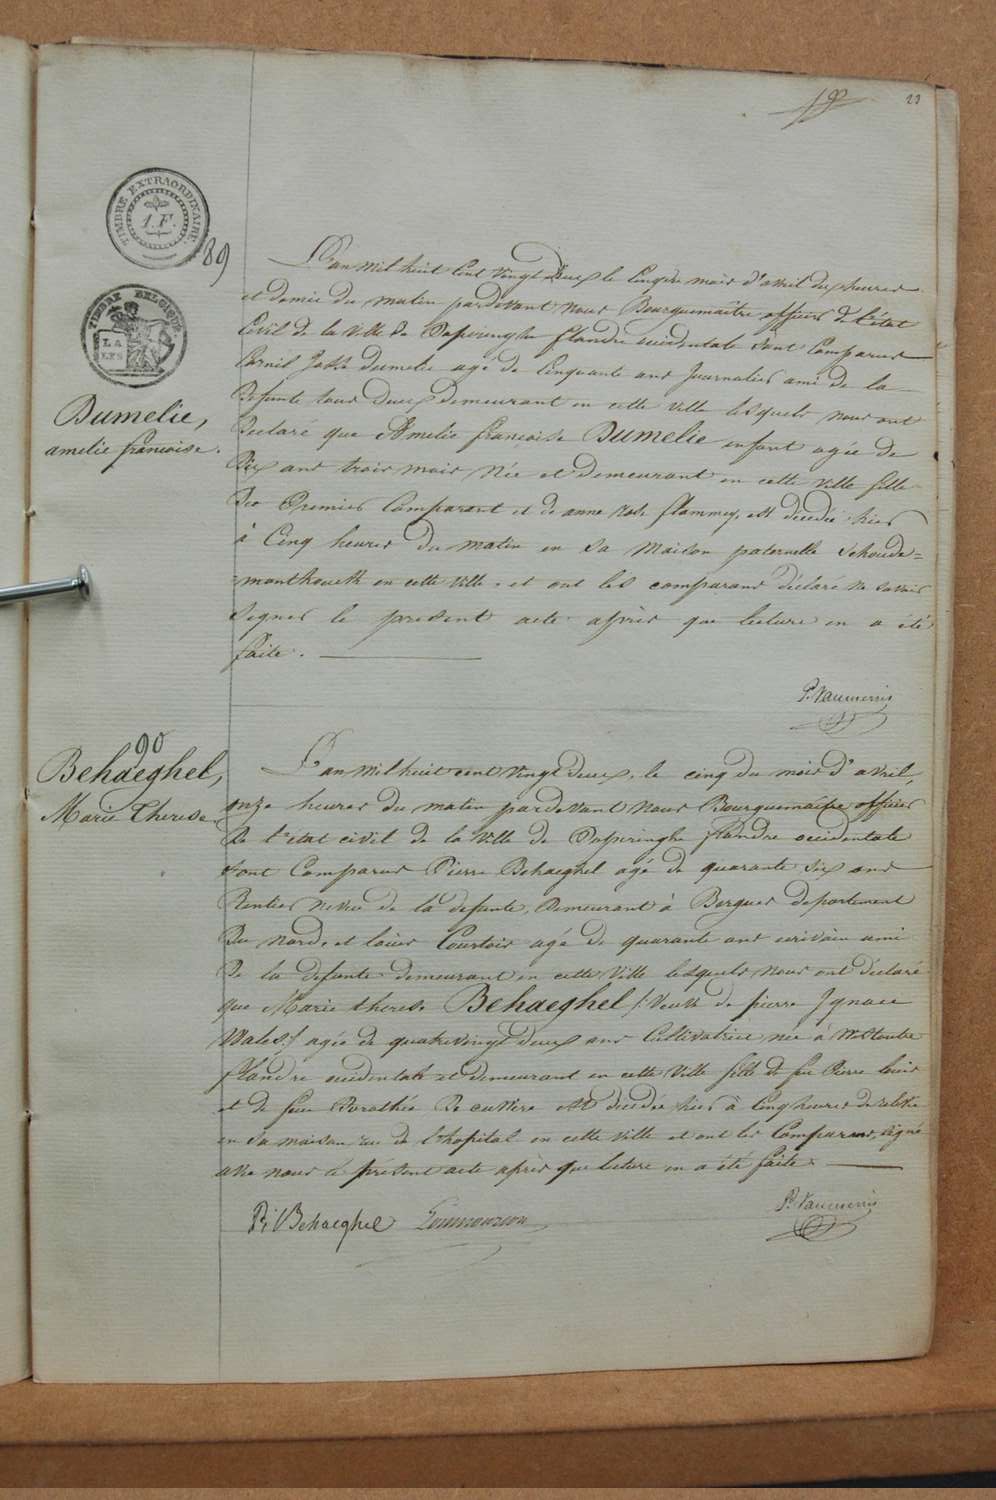 23
TIMBRE EXTRAORDINAIRE
1.F.
89
TIMBRE BELGIQUE
Dumelie,
amelie francoise.
L'an mil huit Cent Vingt Deux le Cinq du mois d'avril dix heures
et demie du matin pardevant nous Bourguemaître officier de l'état
Civil de la Ville de Poperinghe flandre occidentale sont Comparus
Cornil Dumelie agé de Cinquante ans Journalier ami de la
Defunte tous Deux demeurant en cette ville lesquels nous ont
Declaré que Amelie francoise Dumelie enfant agée de
Dix ans trois mois Née et demeurant en cette Ville fille
Du Premier Comparant et de anne Rose flammey, est décedée hier
à Cinq heures du matin en sa Maison paternelle Schoude=
monthouck en cette Ville, et ont les comparans déclaré ne savoir
Signer le present acte après que lecture en a été
faite.
P. Vanmerris
90
Behaeghel,
Marie Therese.
L'an mil huit cent Vingt deux, le cinq du mois d'avril,
onze heures du matin pardevant nous Bourguemaître officier
De l'état civil de la Ville de Poperinghe flandre occidentale
sont Comparus Pierre Behaeghel agé de quarante six ans
Rentier neveu de la defunte, Demeurant à Bergues departement
Du Nord, et louis Courtois agé de quarante ans ecrivain ami
De la defunte demeurant en cette Ville lesquels nous ont déclaré
que Marie therese Behaeghel /: Veuve de pierre Ignace
Wales :/ agée de quatrevingt deux ans Cultivatrice née à Westoutre
flandre occidentale et demeurant en cette Ville fille de feu Pierre louis
et de feue Dorothée De cuttere est décedée hier à Cinq heures de relevée
en sa maison rue de l'hopital en cette Ville et ont les Comparans, signé
avec nous le présent acte après que lecture en a été faite.
P: Behaeghel
P. Vanmerris